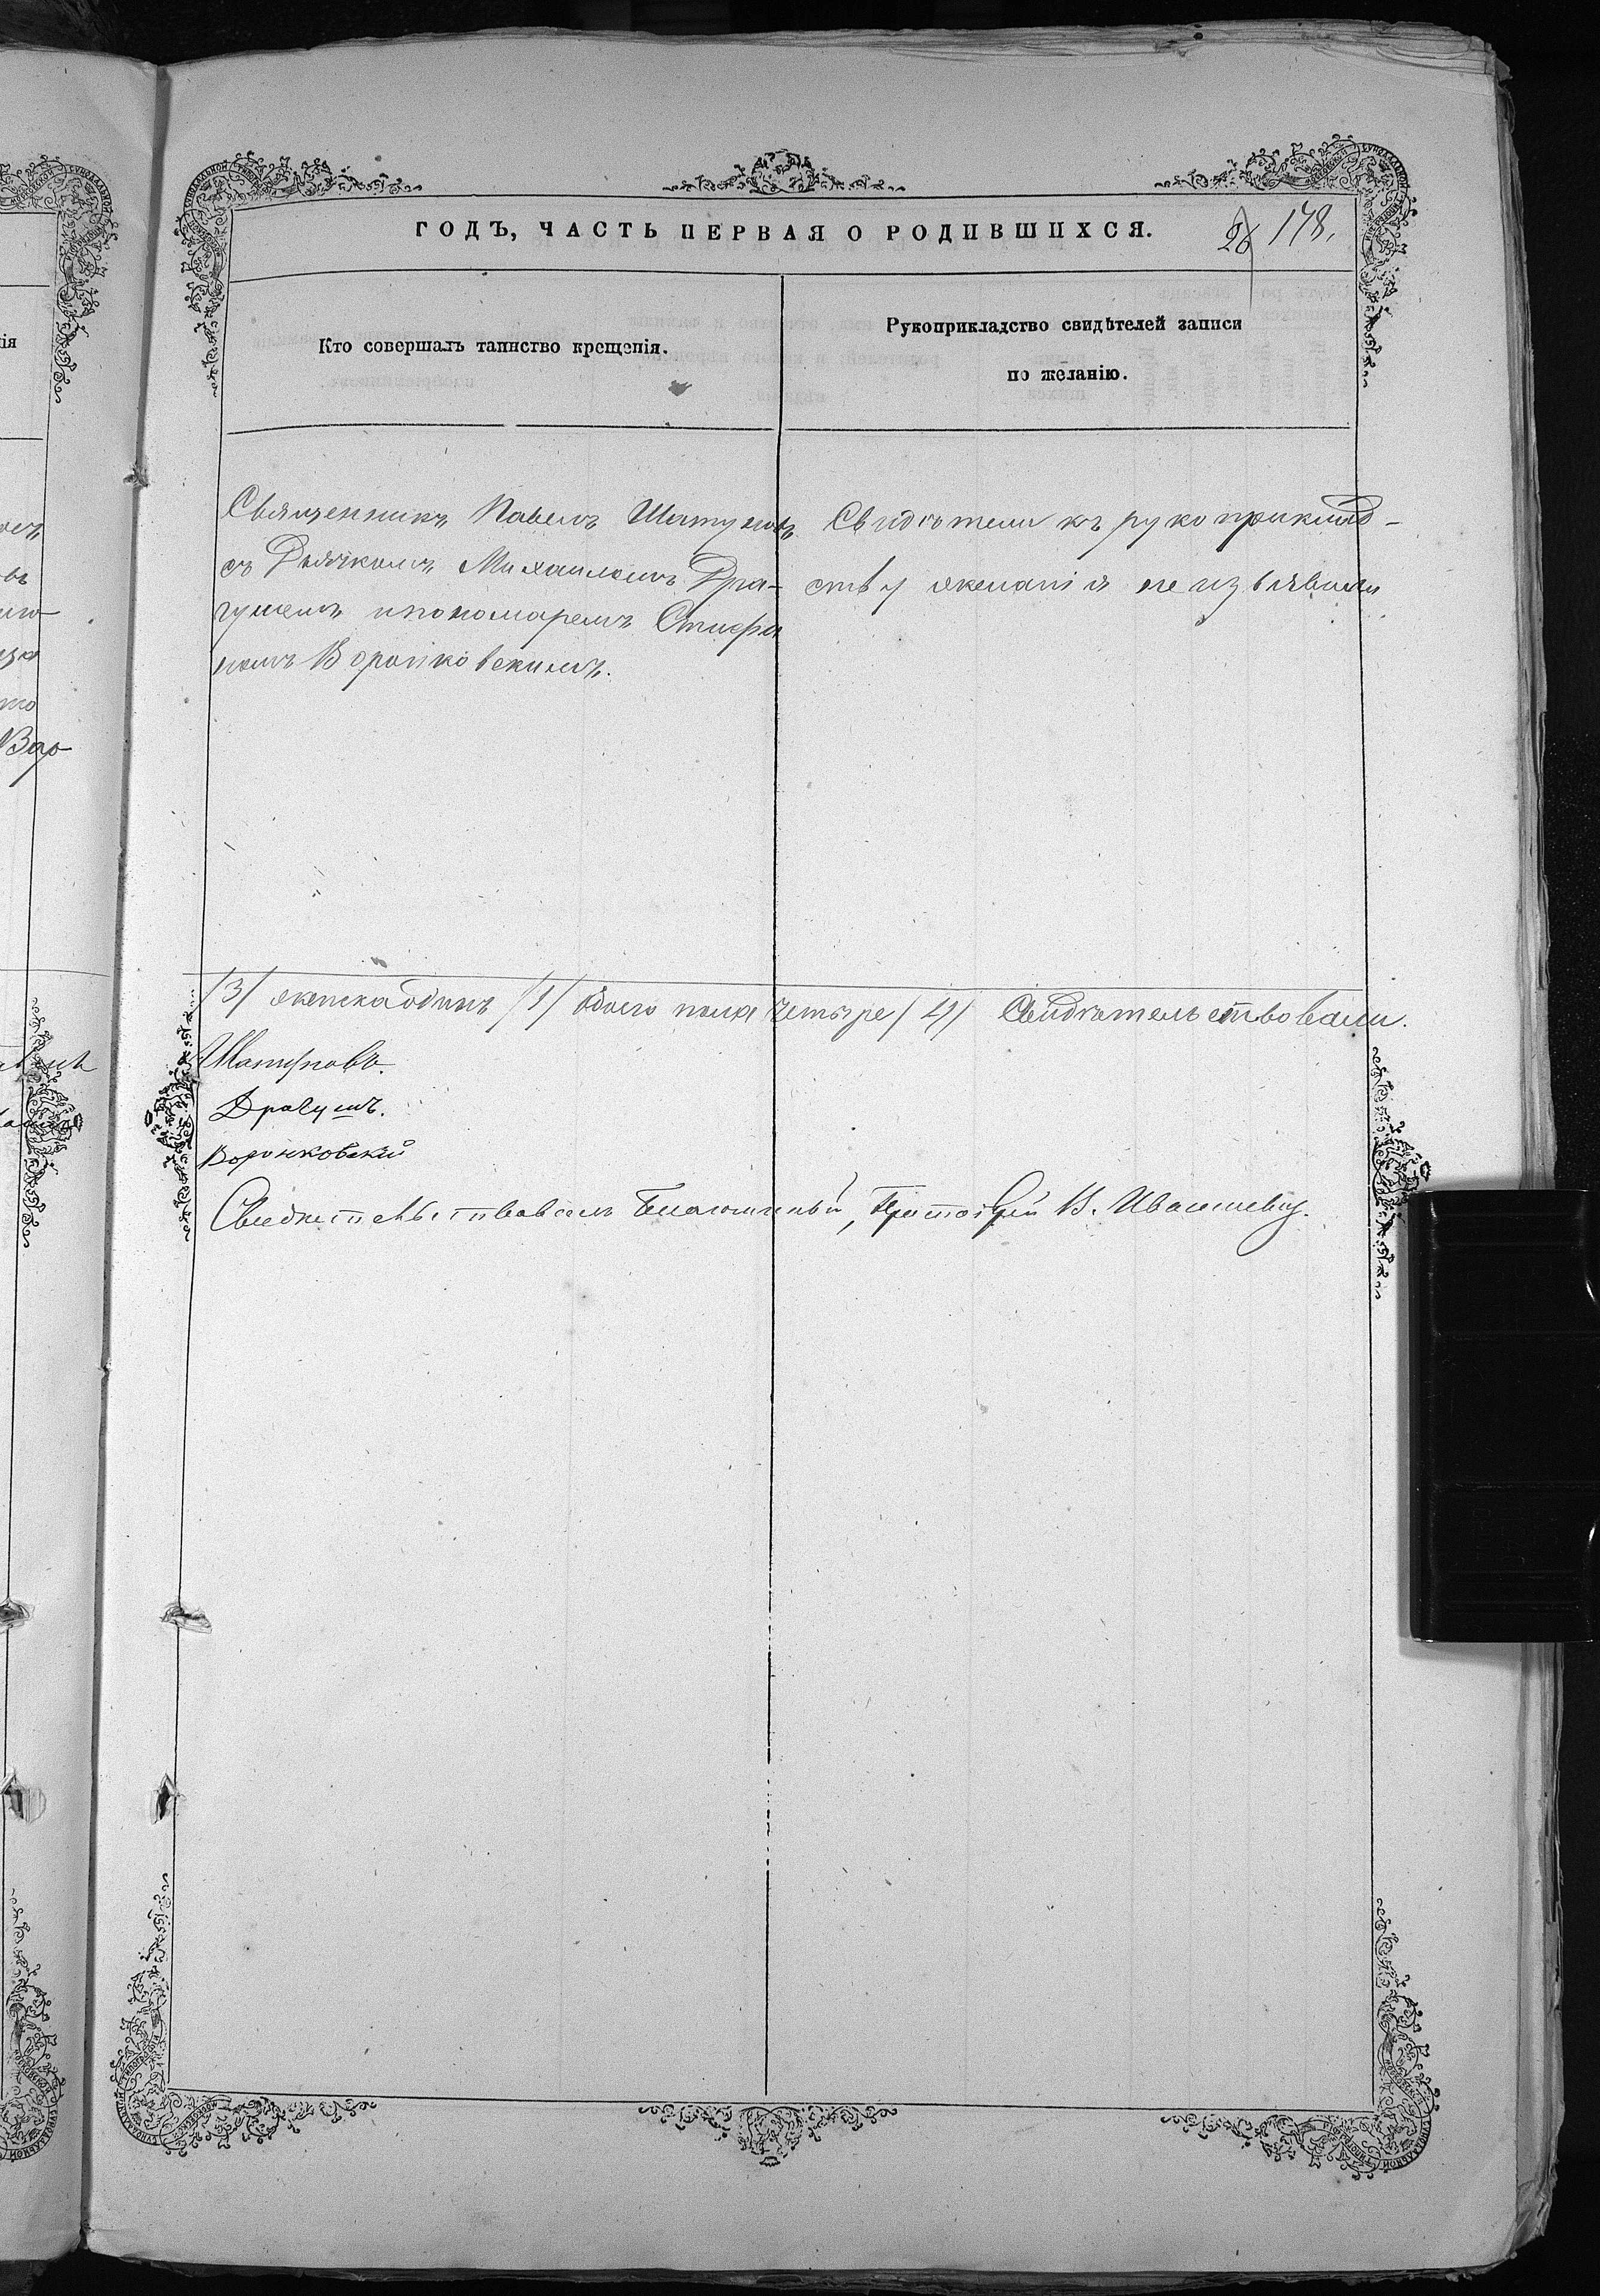 ГОДЪ, ЧАСТЬ ПЕРВАЯ О РОДИВШИХСЯ.
26 178.
Кто совершалъ таинство крещенія.
Рукоприкладство свидѣтелей записи
по желанію.
Священникъ Павелъ Шатуновъ
съ Дьячкомъ Михаиломъ Дра-
гушемъ и пономаремъ Стефа
номъ Воронковскимъ.
Свидѣтели къ рукоприклад-
ству желанія не изъявили
/3/ женска одинъ /1/ обоего пола четыре /4/ Свидѣтельствовали.
Шатуновъ.
Драгушъ.
Воронковскій
Свидѣтельствовалъ Благочинный, Протоіерей В. Ивашевъ.
ія
Вор